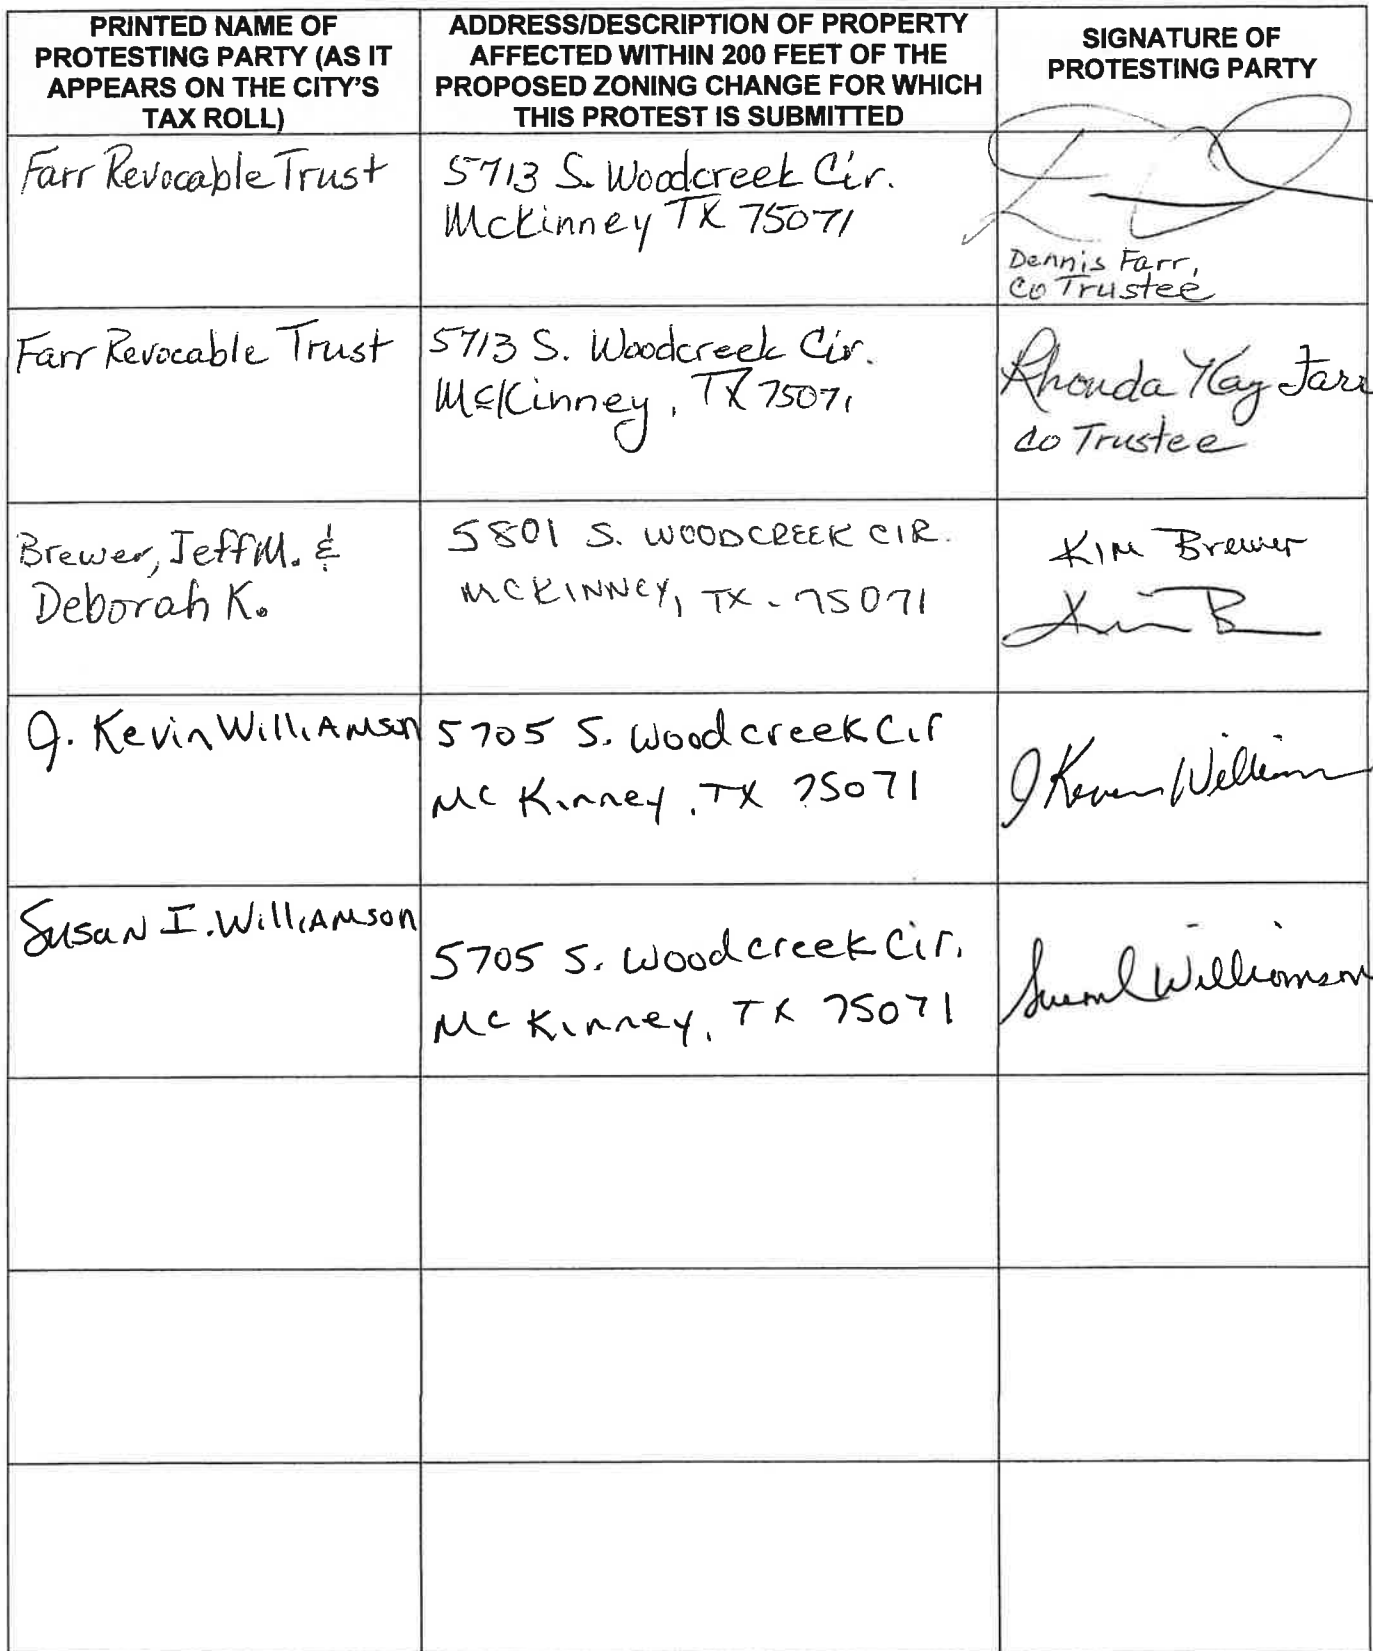 PRINTED NAME OF
PROTESTING PARTY (AS IT
APPEARS ON THE CITY'S
TAX ROLL)
ADDRESS/DESCRIPTION OF PROPERTY
AFFECTED WITHIN 200 FEET OF THE
PROPOSED ZONING CHANGE FOR WHICH
THIS PROTEST IS SUBMITTED
SIGNATURE OF
PROTESTING PARTY
Farr Revocable Trust
5713 S. Woodcreek Cir.
McKinney TX 75071
Dennis Farr,
Co Trustee
Farr Revocable Trust
5713 S. Woodcreek Cir.
McKinney, TX 75071
Rhonda Kay Farr
Co Trustee
Brewer, Jeff M. &
Deborah K.
5801 S. WOODCREEK CIR.
MCKINNEY, TX - 75071
KIM Brewer
Kim B
J. Kevin Williamson
5705 S. Woodcreek Cir
McKinney, TX 75071
J Kevin William
Susan I. Williamson
5705 S. Woodcreek Cir.
McKinney, TX 75071
Susan I Williamson